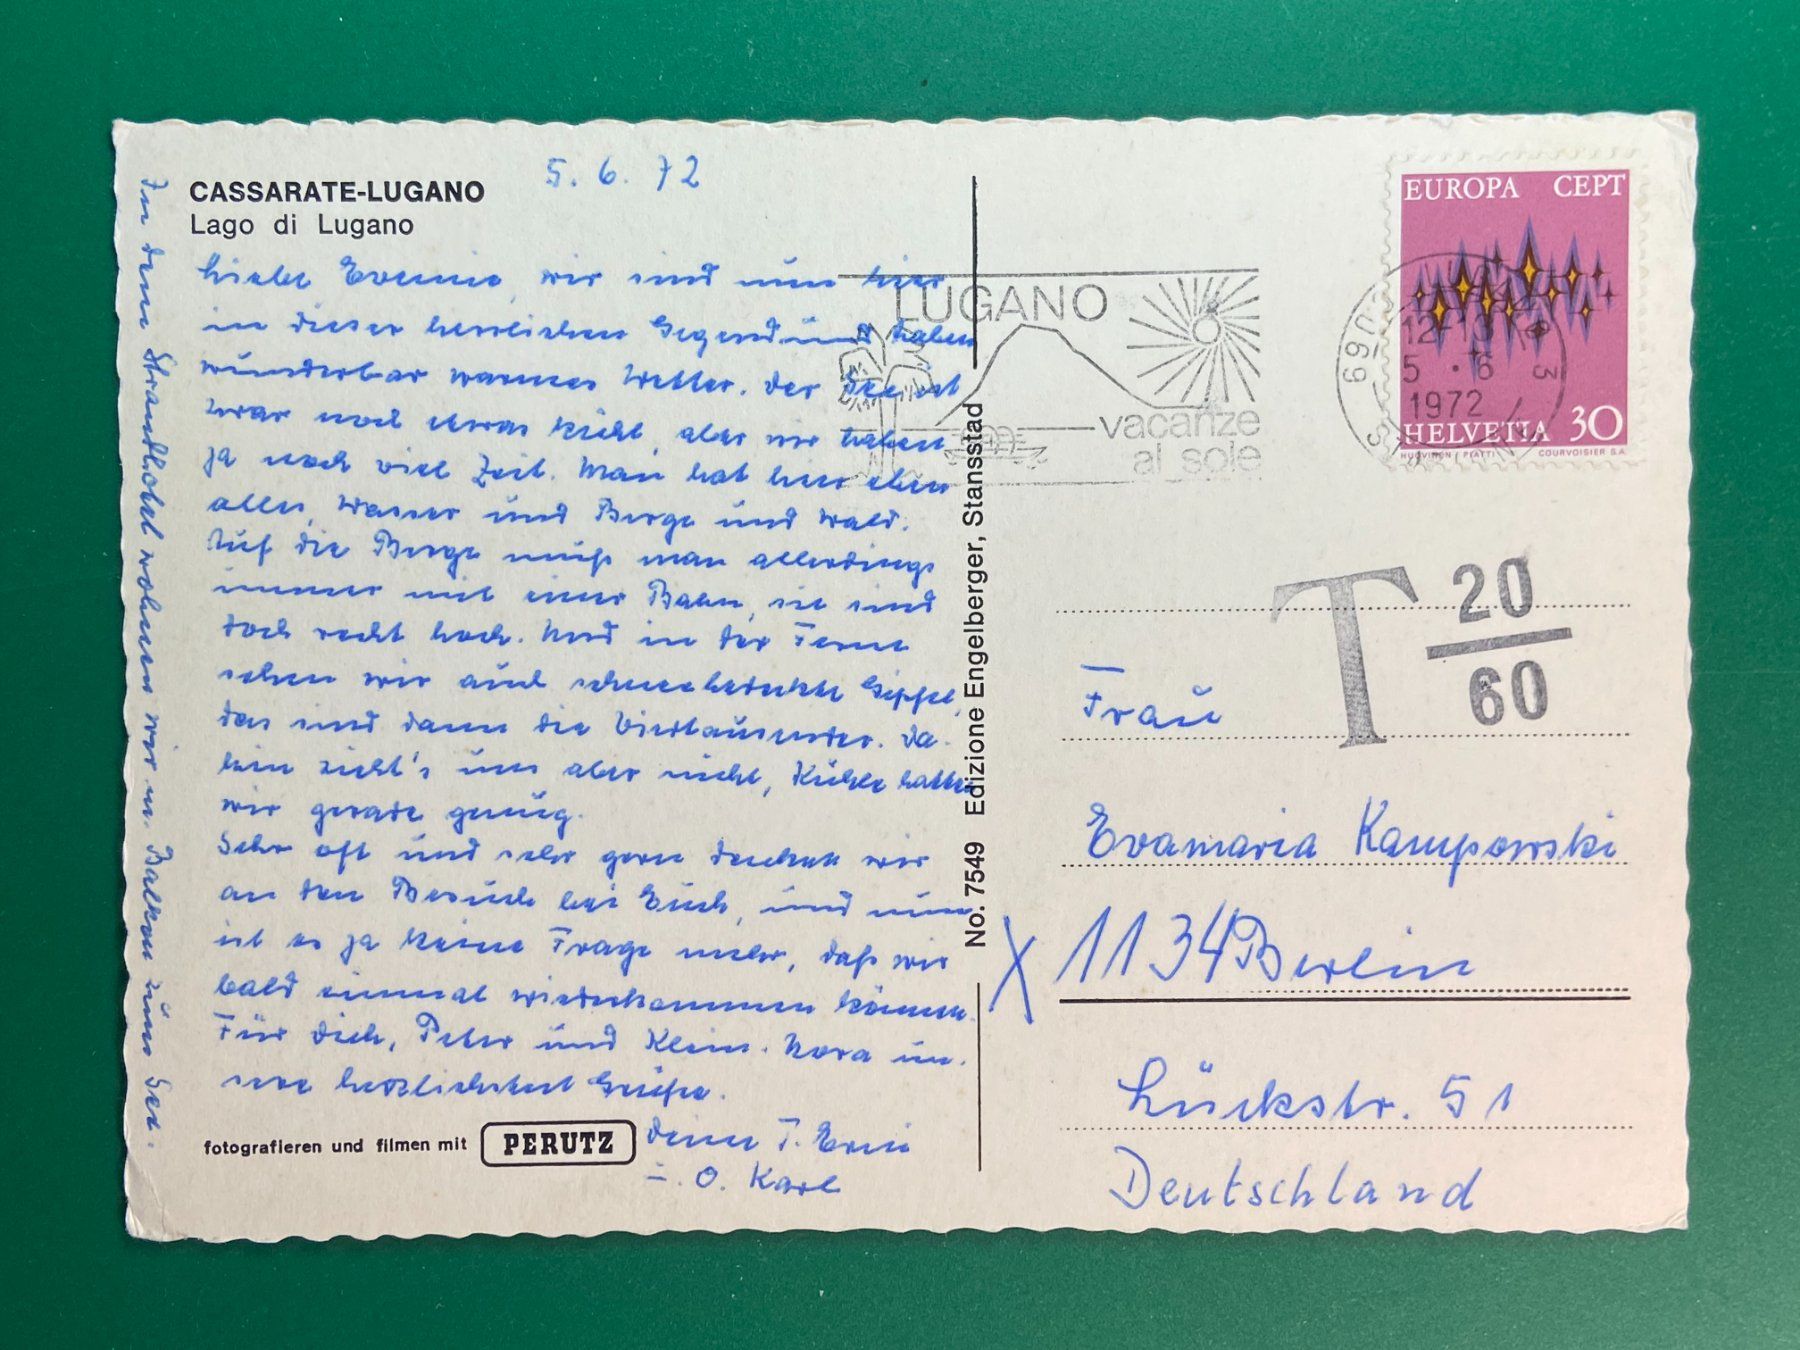 5. 6. 72
CASSARATE-LUGANO
Lago di Lugano
Liebe Evemie, wir sind nun hier
in dieser herrlichen Gegend und haben
wunderbar warmes Wetter. Der See ist
zwar noch etwas kühl, aber wir haben
ja noch viel Zeit. Man hat hier eben
alles, Wasser und Berge und Wald.
Auf die Berge muß man allerdings
immer mit einer Bahn, sie sind
doch recht hoch. Und in der Ferne
sehen wir auch schneebedeckte Gipfel,
das sind dann die Viertausender. Da-
hin zieht's uns aber nicht, Kühle hatten
wir gerade genug.
Sehr oft und sehr gern denken wir
an den Besuch bei Euch, und nun
ist es ja keine Frage mehr, daß wir
bald einmal wiederkommen können.
Für Dich, Peter und Klein-Nora un-
sere herzlichsten Grüße.
Deine T. Erni
u. O. Karl
In dem Strandhotel wohnen wir m. Balkon zum See.
fotografieren und filmen mit PERUTZ
No. 7549 Edizione Engelberger, Stansstad
LUGANO
vacanze
al sole
EUROPA CEPT
HELVETIA 30
HUGUENIN / PIATTI COURVOISIER S.A.
690
12-13
5.-6
1972
3
T 20
60
Frau
Evamaria Kampowski
X 1134 Berlin
Lückstr. 51
Deutschland